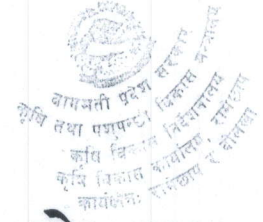 बागमती प्रदेश सरकार
कृषि तथा पशुपन्छी विकास मन्त्रालय
कृषि विकास निर्देशनालय
कृषि विकास कार्यालय रामेछाप
कार्यक्षेत्रः रामेछाप र दोलखा